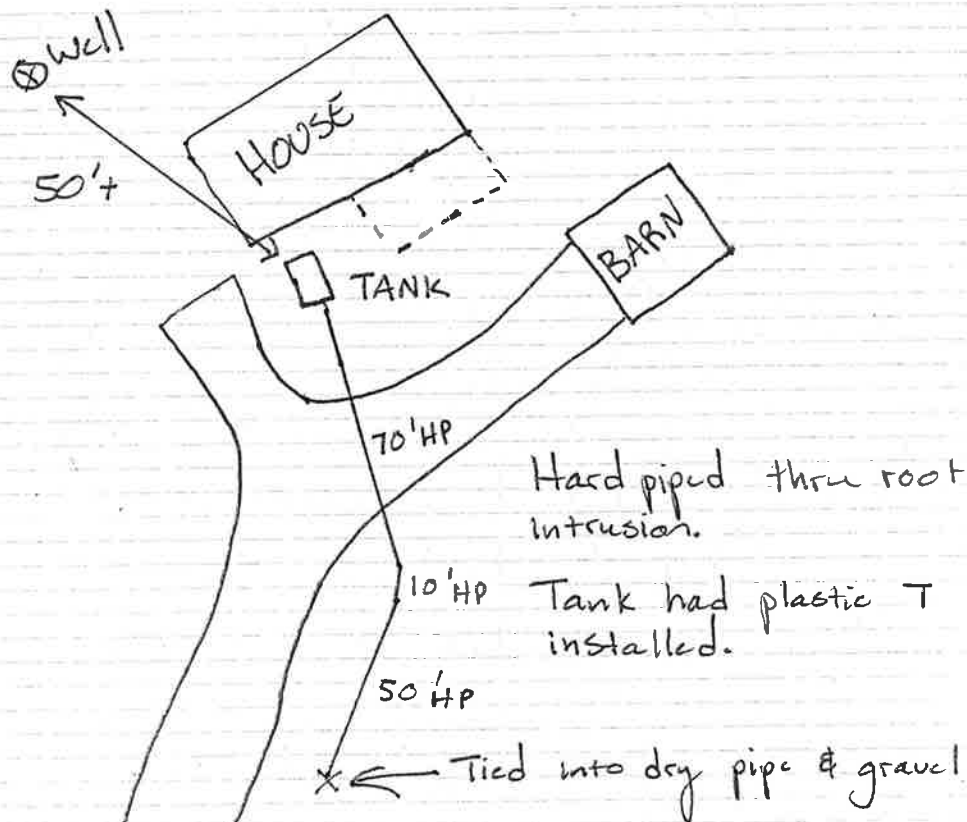 Well
HOUSE
50'+
TANK
BARN
70' HP
Hard piped thru root
intrusion.
10' HP
Tank had plastic T
installed.
50' HP
Tied into dry pipe & gravel